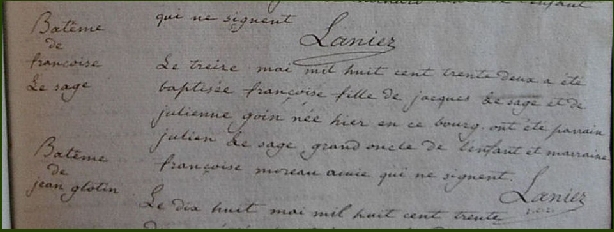 qui ne signent
Laniez
Batême
de
francoise
Le sage
Le treize mai mil huit cent trente deux a été
baptisée françoise fille de jacques Le sage et de
julienne goin née hier en ce bourg. ont été parrain
julien Le sage grand oncle de l'enfant et marraine
françoise moreau amie qui ne signent.
Laniez
Batême
de
jean glotin
Le dix huit mai mil huit cent trente